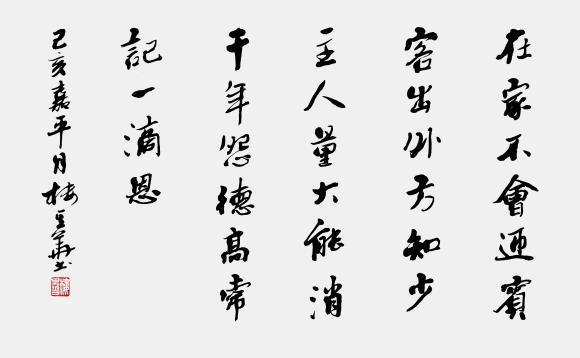 在家不會迎賓
客出外方知少
主人量大能消
千年怨德高常
記一滴恩
己亥嘉平月